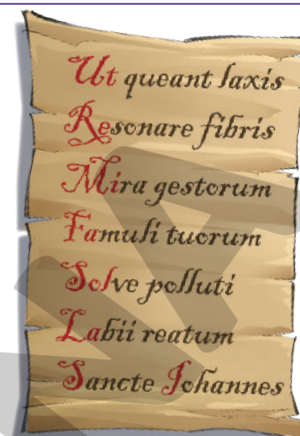 Ut queant laxis
Resonare fibris
Mira gestorum
Famuli tuorum
Solve polluti
Labii reatum
Sancte Johannes